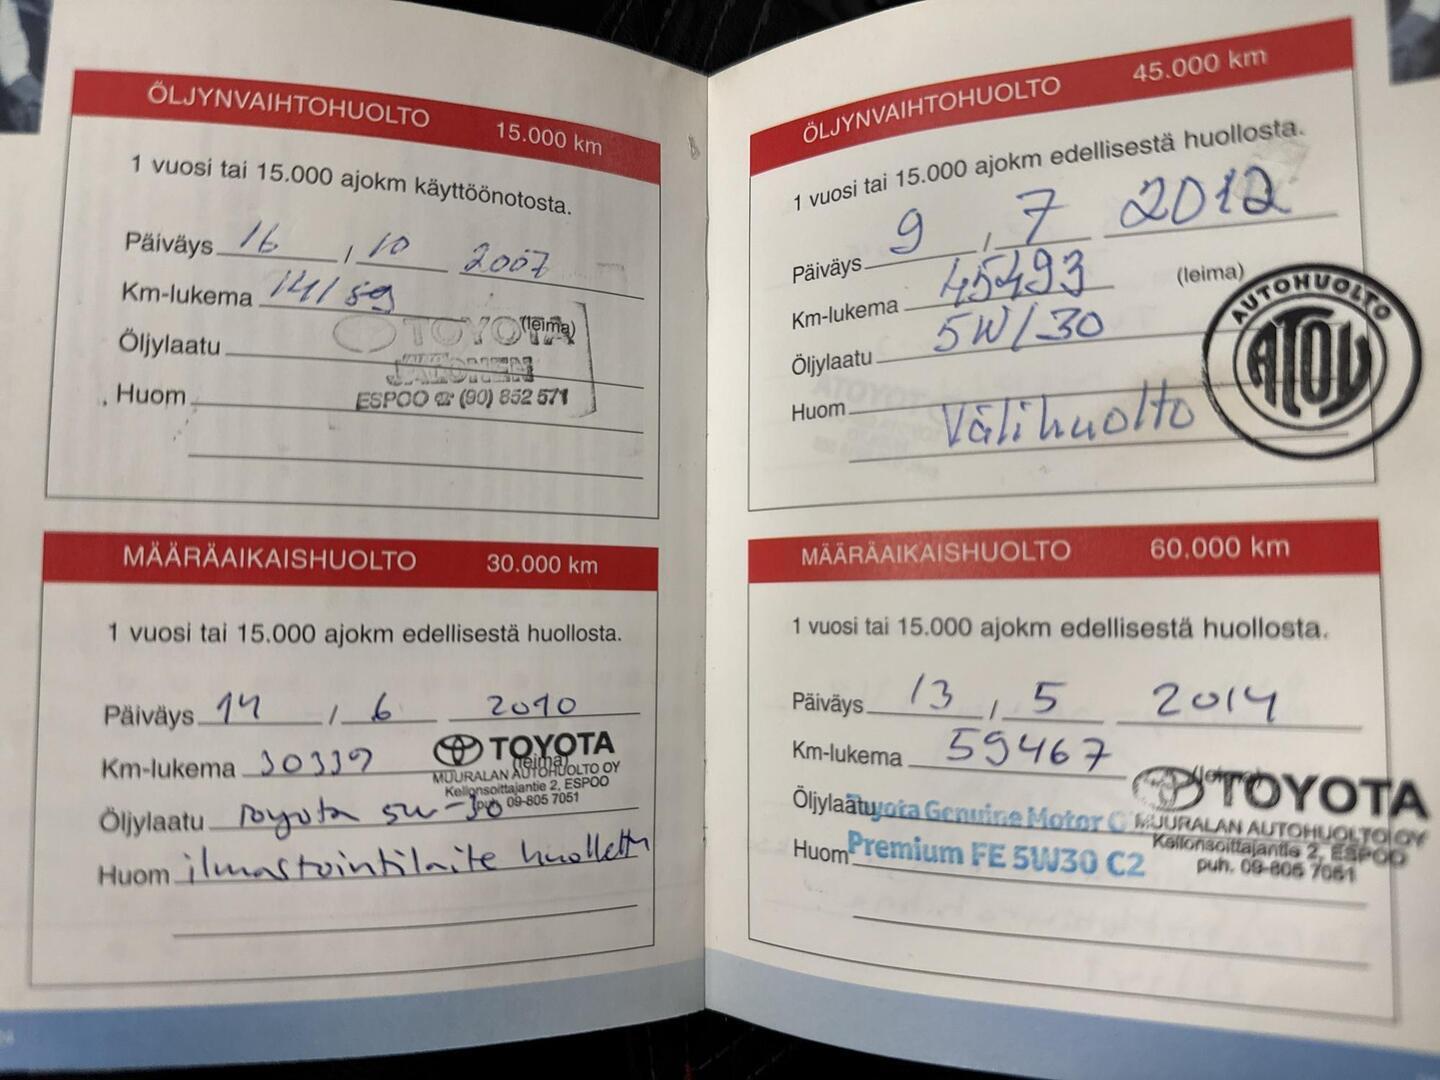 ÖLJYNVAIHTOHUOLTO 15.000 km
1 vuosi tai 15.000 ajokm käyttöönotosta.
Päiväys 16 / 10 2007
Km-lukema 14159
(leima)
TOYOTA
Öljylaatu
JALONEN
ESPOO ☎ (90) 852 571
Huom
MÄÄRÄAIKAISHUOLTO 30.000 km
1 vuosi tai 15.000 ajokm edellisestä huollosta.
Päiväys 14 / 6 2010
Km-lukema 30339
TOYOTA
(leima)
MUURALAN AUTOHUOLTO OY
Kellonsoittajantie 2, ESPOO
puh. 09-805 7051
Öljylaatu Toyota 5w-30
Huom ilmastointilaite huollettu
ÖLJYNVAIHTOHUOLTO 45.000 km
1 vuosi tai 15.000 ajokm edellisestä huollosta.
Päiväys 9 / 7 2012
Km-lukema 45493
(leima)
AUTOHUOLTO
ATOY
Öljylaatu 5W/30
Huom Välihuolto
MÄÄRÄAIKAISHUOLTO 60.000 km
1 vuosi tai 15.000 ajokm edellisestä huollosta.
Päiväys 13 / 5 2014
Km-lukema 59467
(leima)
TOYOTA
MUURALAN AUTOHUOLTO OY
Kellonsoittajantie 2, ESPOO
puh. 09-805 7051
Öljylaatu Toyota Genuine Motor
Huom Premium FE 5W30 C2